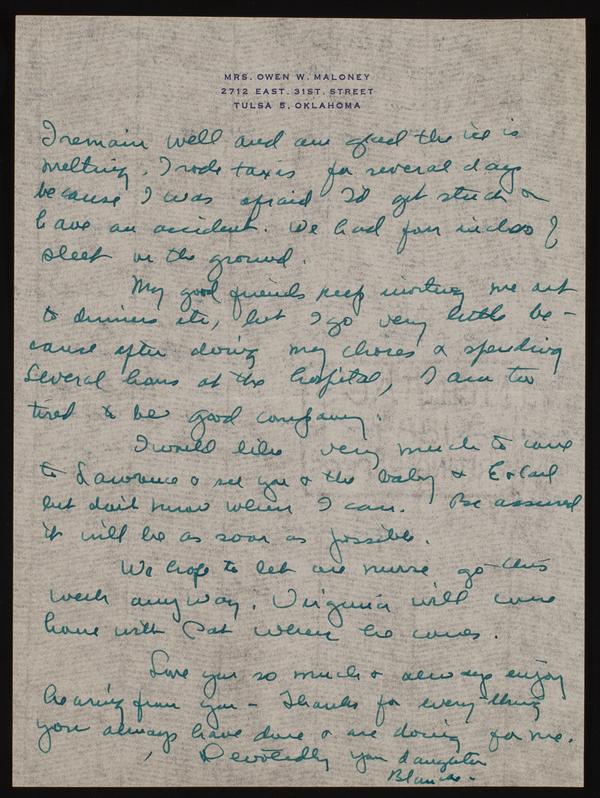 MRS. OWEN W. MALONEY
2712 EAST. 31ST. STREET
TULSA 5, OKLAHOMA
I remain well and am glad the ice is
melting. I rode taxis for several days
because I was afraid I'd get stuck or
have an accident. We had four inches of
sleet on the ground.
My good friends keep inviting me out
to dinners etc, but I go very little be-
cause after doing my chores & spending
several hours at the hospital, I am too
tired to be good company.
I would like very much to come
to Lawrence & see you & the baby & E & Carl
but don't know when I can. Be assured
it will be as soon as possible.
We hope to let one nurse go this
week anyway. Virginia will come
home with Pat when he comes.
Love you so much & always enjoy
hearing from you - Thanks for everything
you always have done & are doing for me.
Devotedly your daughter
Blanche -